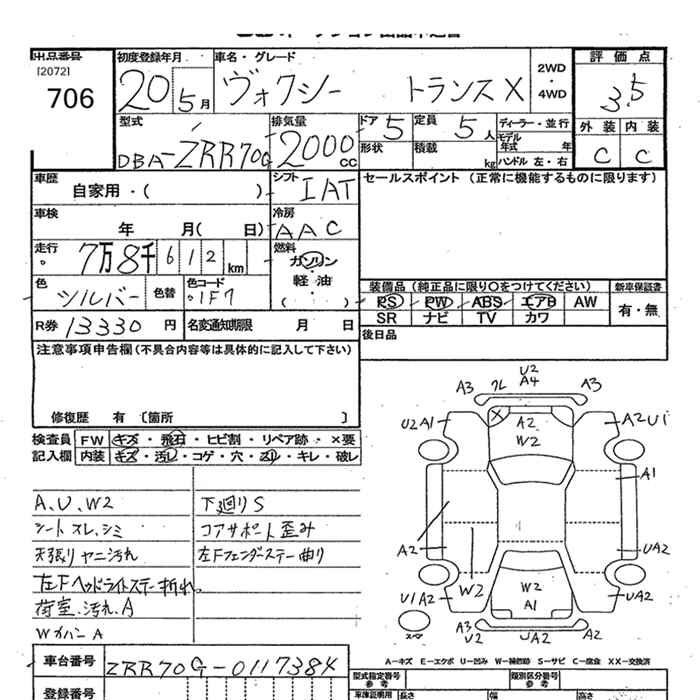 出品番号
[2072]
706
初度登録年月
20 5月
車名・グレード
ヴォクシー トランスX
2WD
・
4WD
評価点
3.5
外装 内装
C C
型式
DBA-ZRR70G
排気量
2000cc
ドア 5
定員 5人
ディーラー・並行
モデル年式 年
形状
積載 kg
ハンドル 左・右
車歴
自家用・( )
シフト
IAT
セールスポイント (正常に機能するものに限ります)
車検
年 月( 日)
冷房
AAC
走行
7万8千612km
燃料
ガソリン
・
軽油
・
( )
色
シルバー
色替
色コード
1F7
装備品 (純正品に限り〇をつけてください)
新車保証書
PS PW ABS エアB AW
有・無
SR ナビ TV カワ
R券 13330円
名変通知期限 月 日
後日品
注意事項申告欄(不具合内容等は具体的に記入して下さい)
修復歴 有 〔箇所 〕
検査員
記入欄
FW キズ・飛石・ヒビ割・リペア跡・×要
内装 キズ・汚レ・コゲ・穴・スリ・キレ・破レ
A、U、W2
シート スレ、シミ
天張リ ヤニ汚れ
左Fヘッドライトステー折れ
荷室、汚れ、A
Wカバー A
下廻リS
コアサポート歪み
左Fフェンダーステー曲り
A3 クレ U2 A4 A3
U2 A1
X
A2
W2
A2 U1
A1
A2
W2
UA2
W2
A1
U1 A2
UA2
スペア
A3
U2
UA2
A2
A-キズ E-エクボ U-凹み W-補修跡 S-サビ C-腐食 XX-交換済
車台番号
ZRR70G-0117384
登録番号
型式指定番号
参考
類別区分番号
参考
車庫証明用
長さ
幅
高さ